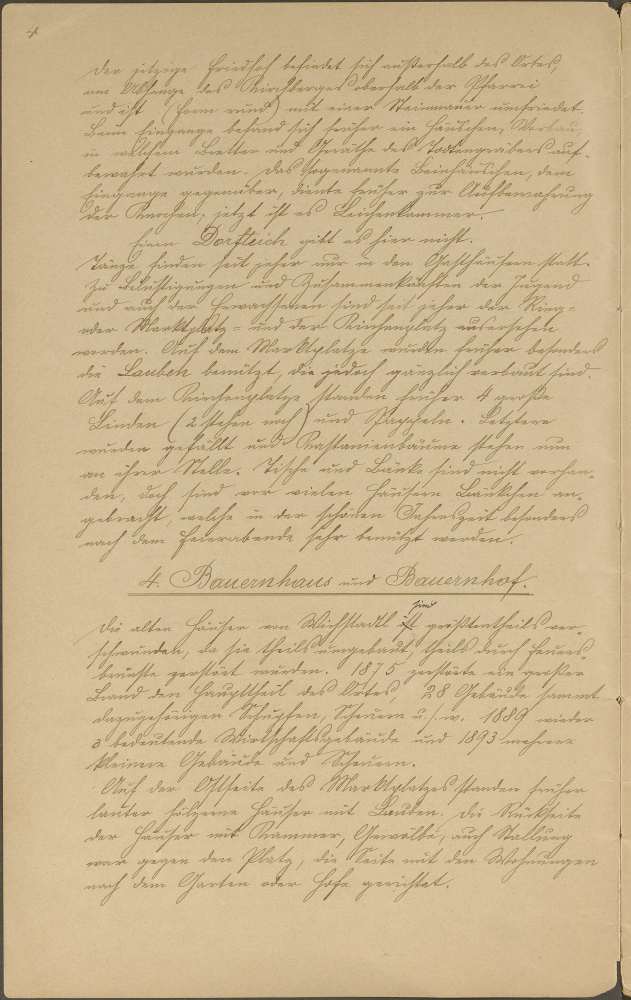 4
Der jetzige Friedhof befindet sich außerhalb des Ortes,
am Abhange des Kirchberges oberhalb der Pfarrei
und ist (Form rund) mit einer Steinmauer umfriedet.
Beim Eingange befand sich früher ein Häuschen,
in welchem Bretter und Geräthe des Todtengräbers auf-
bewahrt wurden. Das sogenannte Beinhäuschen, dem
Eingange gegenüber, diente früher zur Aufbewahrung
der Knochen, jetzt ist es Leichenkammer.
Einen Dorfteich gibt es hier nicht.
Tänze finden seit jeher nur in den Gasthäusern statt.
Zu Belustigungen und Zusammenkünften der Jugend
und auch der Erwachsenen sind seit jeher der Ring-
oder Marktplatz- und der Kirchenplatz ausersehen
worden. Auf dem Marktplatze wurden früher besonders
die Lauben benützt, die jedoch gänzlich verbaut sind.
Auf dem Kirchenplatze standen früher 4 große
Linden (2 stehen noch) und Pappeln. Letztere
wurden gefällt und Kastanienbäume stehen nun
an ihrer Stelle. Tische und Bänke sind nicht vorhan-
den, doch sind vor vielen Häusern Bänkchen an-
gebracht, welche in der schönen Jahreszeit besonders
nach dem Feierabende sehr benützt werden.
4. Bauernhaus und Bauernhof.
Die alten Häuser von Wichstadtl sind größtentheils ver-
schwunden, da sie theils umgebaut, theils durch Feuers-
brünste zerstört wurden. 1875 zerstörte ein großer
Brand den Haupttheil des Ortes, 28 Gebäude sammt
dazugehörigen Schupfen, Scheuern u. s. w. 1889 wieder
3 bedeutende Wirtschaftsgebäude und 1893 mehrere
kleinere Gebäude und Scheuern.
Auf der Ostseite des Marktplatzes standen früher
lauter hölzerne Häuser mit Lauben. Die Rückseite
der Häuser mit Kammer, Gewölbe, auch Stallung
war gegen den Platz, die Seite mit den Wohnungen
nach dem Garten oder Hofe gerichtet.